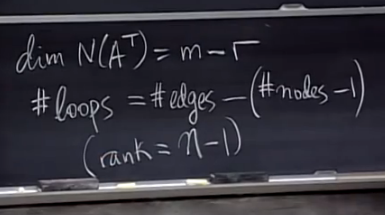 dim N(Aᵀ) = m - r
#loops = #edges - (#nodes - 1)
(rank = n - 1)